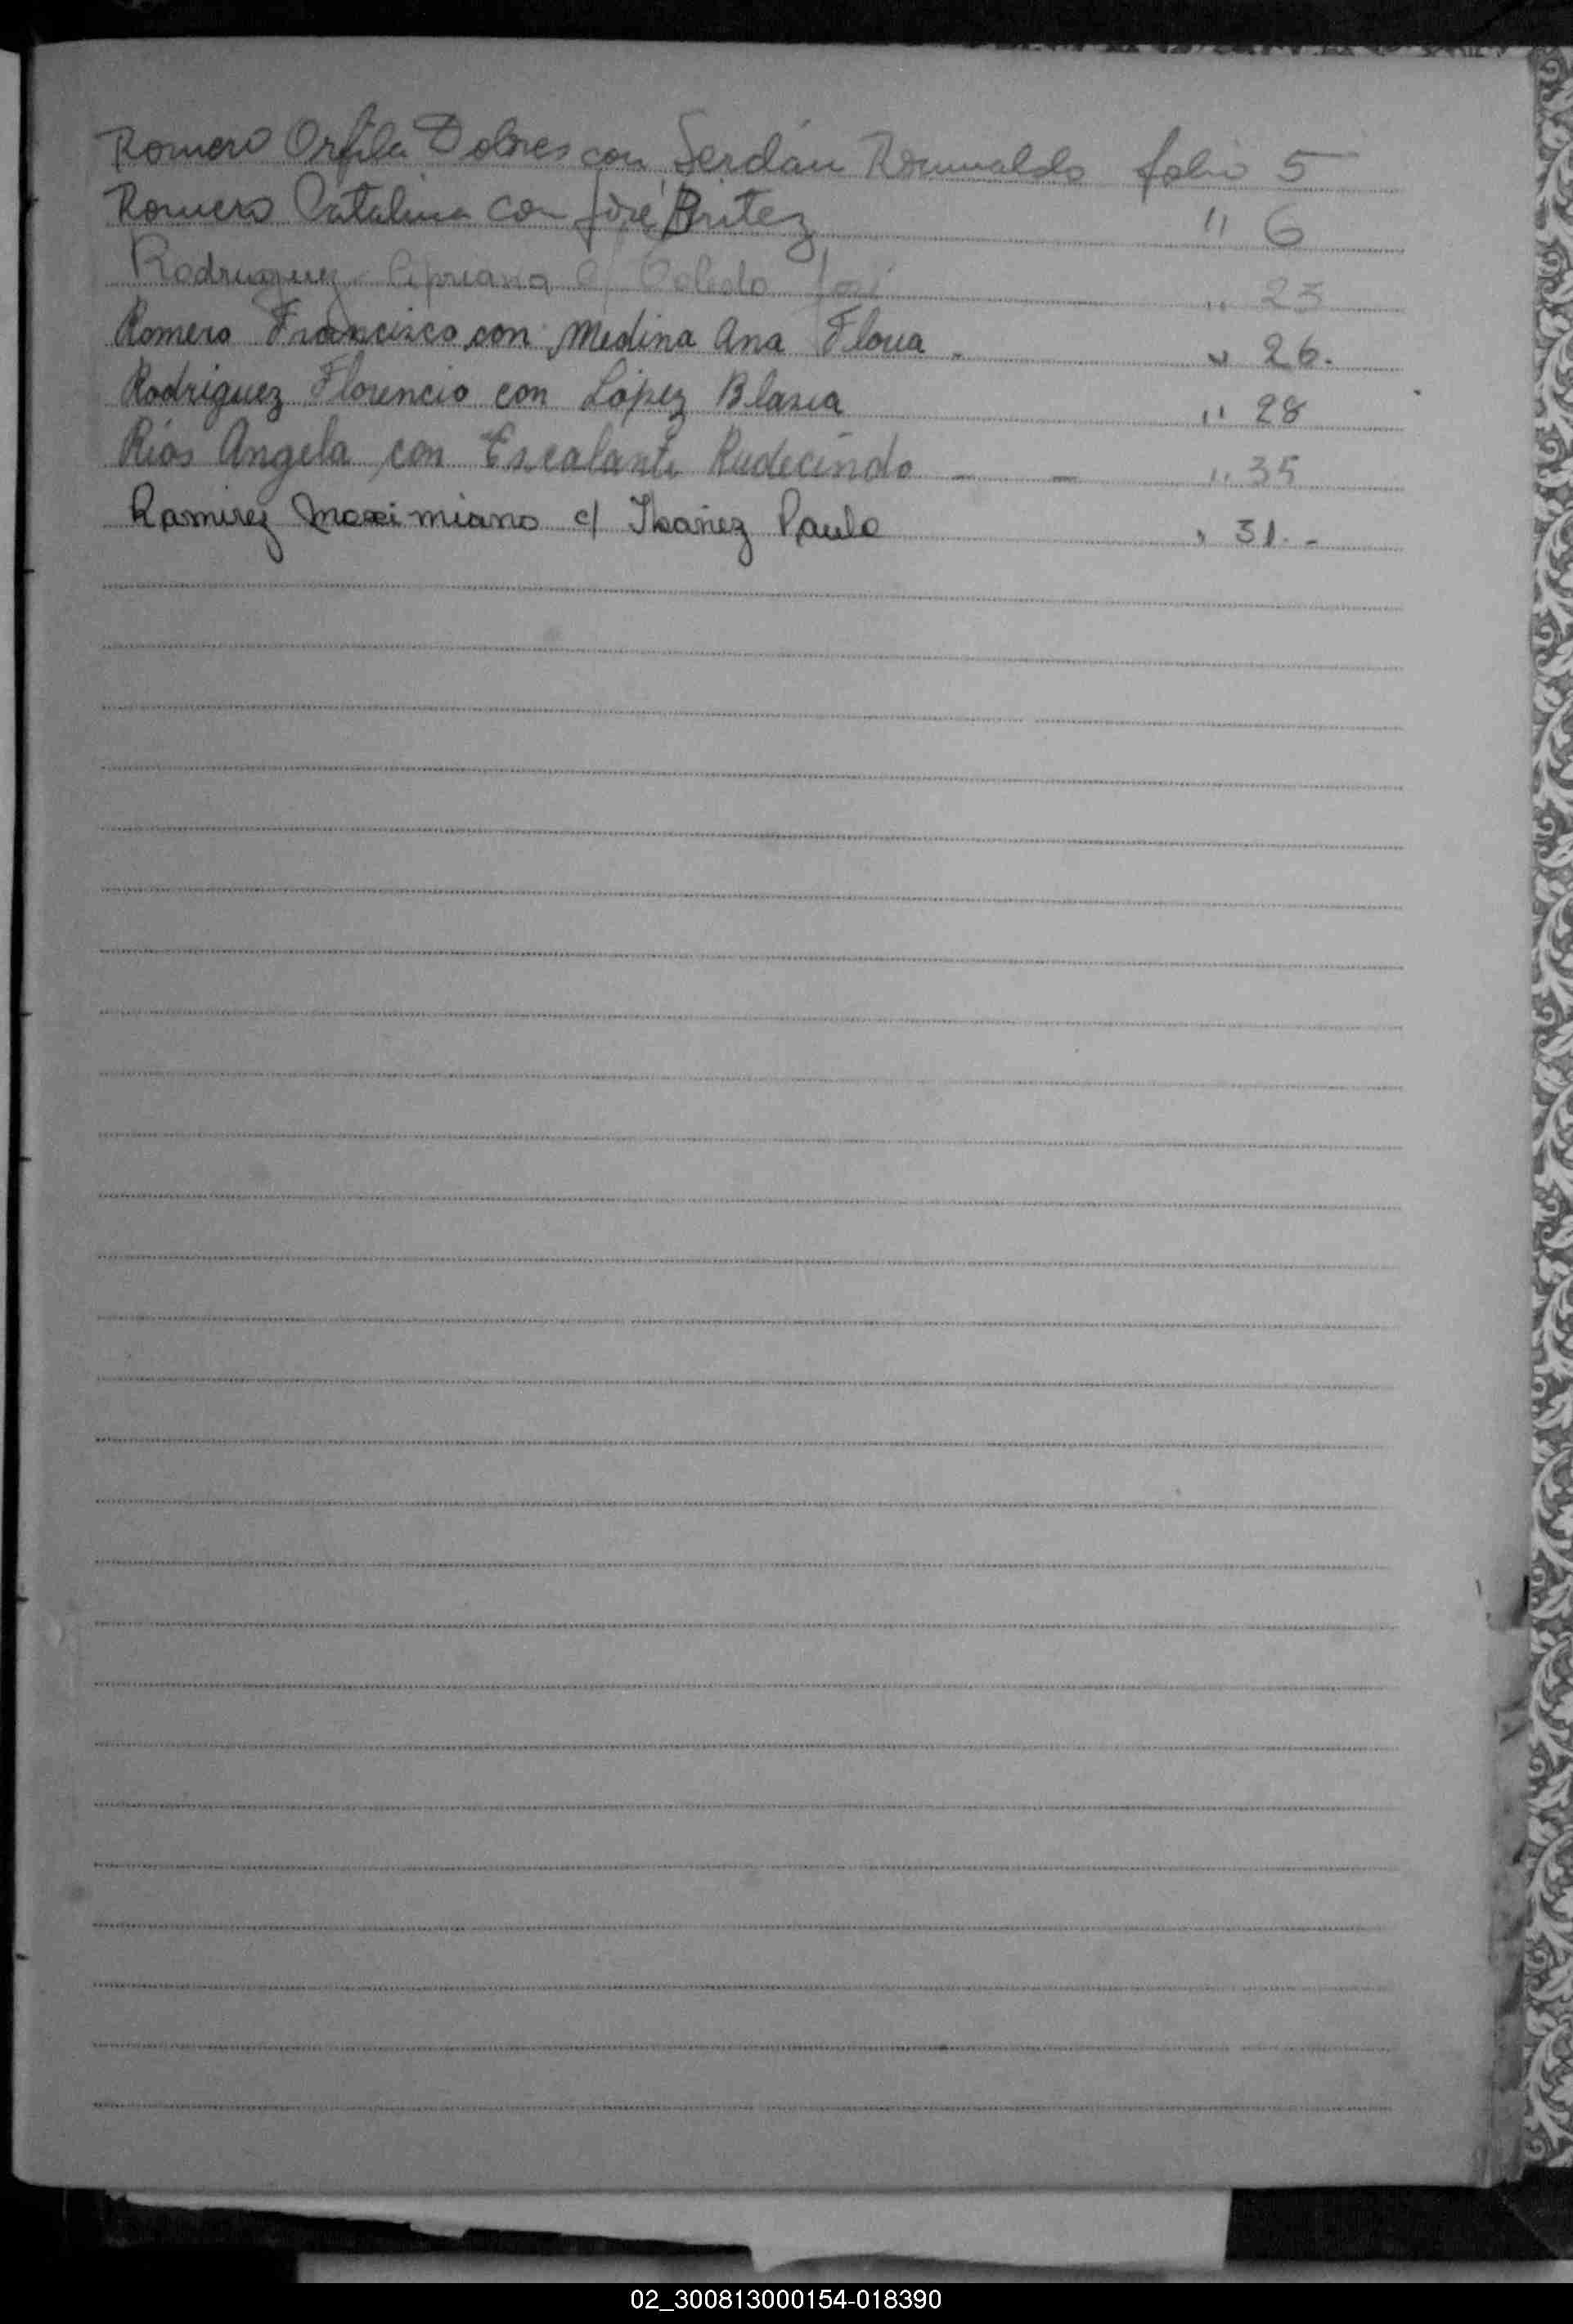 Romero Orfila Dolores con Serdán Romualdo folio 5
Romero Catalina con José Britez " 6
Rodriguez Cipriana c/ Toledo José " 23
Romero Francisco con Medina Ana Floria . " 26.
Rodriguez Florencio con López Blasia " 28
Rios Angela con Escalante Rudecindo — — " 35
Ramirez Maximiano c/ Ibañez Paula " 31.-
02_300813000154-018390